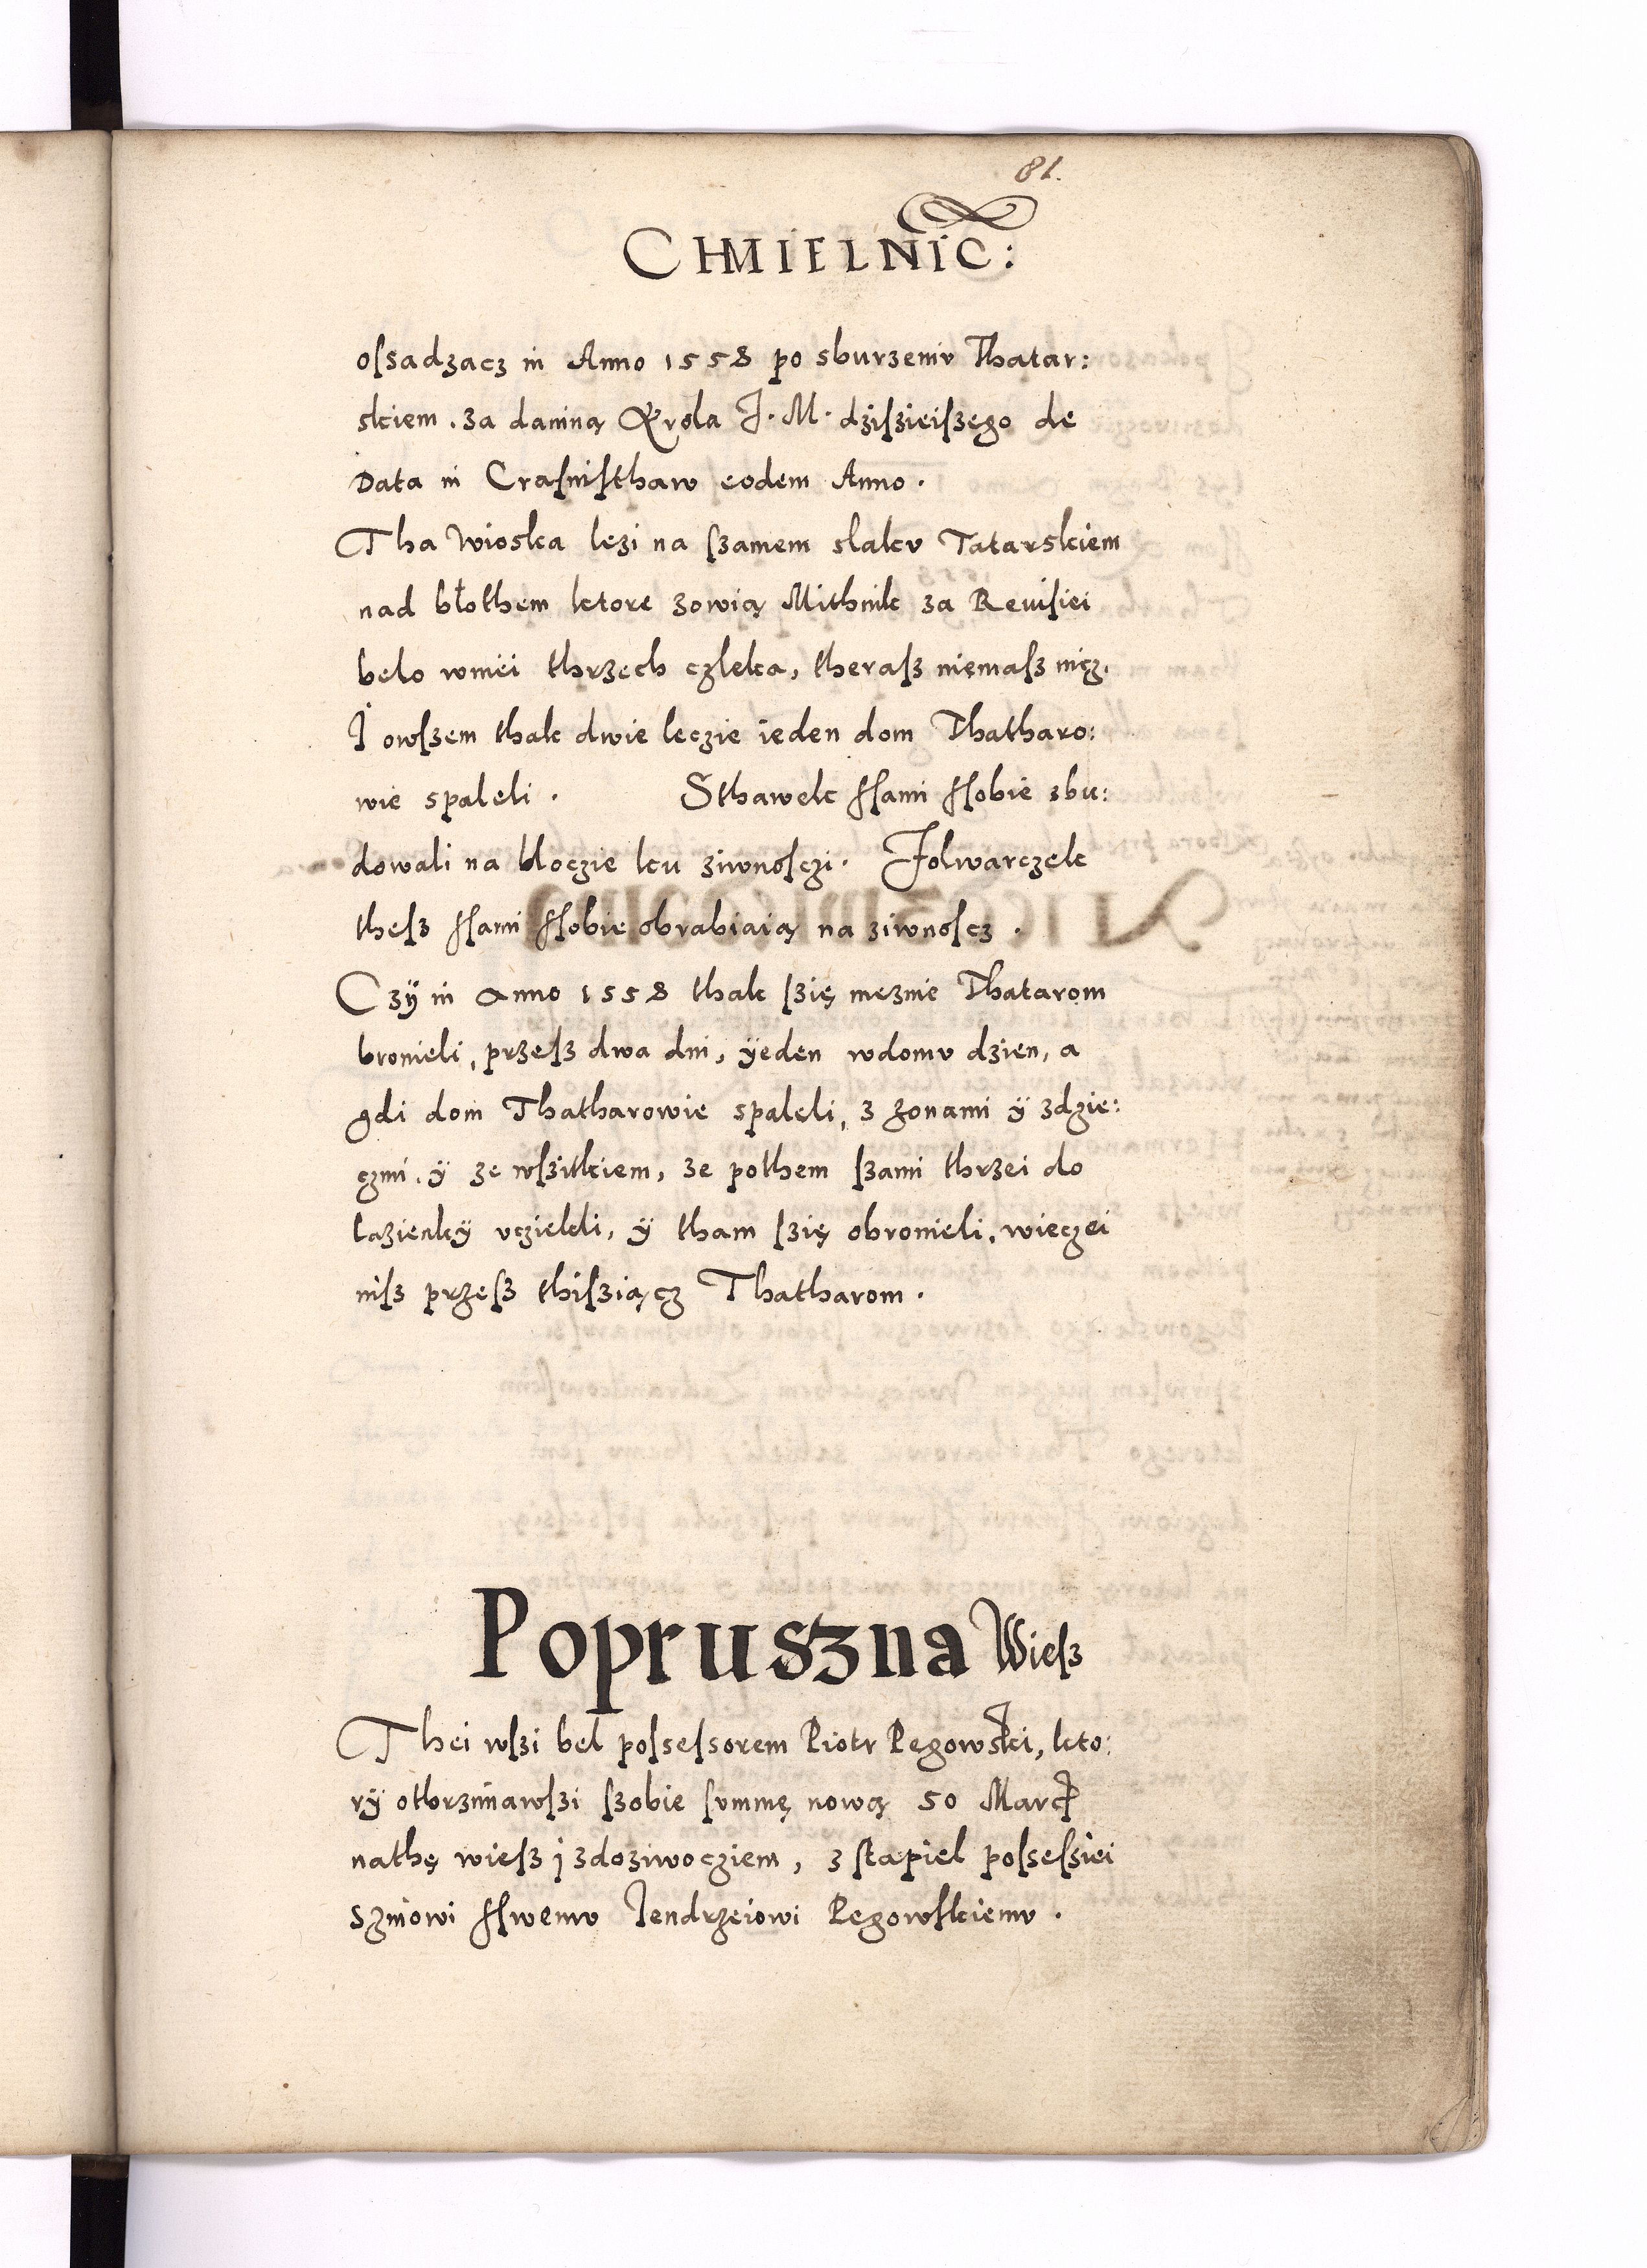 81.
CHMIELNIC:
ossadzacz in Anno 1558 po sburzeniv Thatar:
skiem. za daniną Krola J. M. dziszieiszego de
Data in Crasnisthaw eodem Anno.
Tha Wioska lezi na szamem slakv Tatarskiem
nad błothem ktore zowią Mithnik za Reuisiei
belo wniei thrzech czleka, therasz niemasz nicz.
I owszem thak dwie leczie ieden dom Thatharo:
wie spaleli. Sthawek ssami ssobie zbu:
dowali na bloczie ku ziwnosczi. Folwarczek
thesz ssami ssobie obrabiaią na ziwnoscz.
Czÿ in anno 1558 thak szię meznie Thatarom
bronieli, przesz dwa dni, ÿeden wdomv dzien, a
gdi dom Thatharowie spaleli, z zonami ÿ zdzie:
czmi, ÿ ze wszitkiem, ze pothem szami thrzei do
lazienkÿ vcziekli, ÿ tham szię obronieli, wieczei
nisz przesz thisziącz Thatharom.
Popruszna Wiesz
Thei wszi bel possessorem Piotr Pegowski, kto:
rÿ othrzimawszi szobie svmmę nową 50 Marcz
nathę wiesz j zdoziwocziem, z stąpiel possessiei
Szinowi sswemv Jendrzeiowi Pegowskiemv.